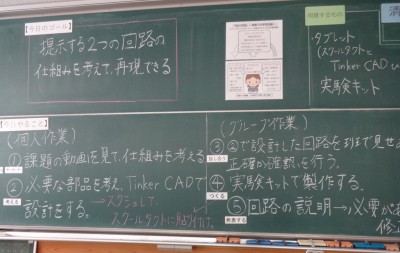 【今日のゴール】
提示する2つの回路の
仕組みを考えて、再現できる
用意するもの
・タブレット
(スクールタクト
Tinker CAD
実験キット
【今日やること】
(個人作業)
①課題の動画を見て、仕組みを考える
②必要な部品を考え、Tinker CADで
考える
設計をする。
→スクショして、
スクールタクトに貼り付け。
(グループ作業)
③②で設計した回路を班で見せ
正確か確認を行う。
④実験キットで製作する。
つくる
⑤回路の説明→必要が
発表する